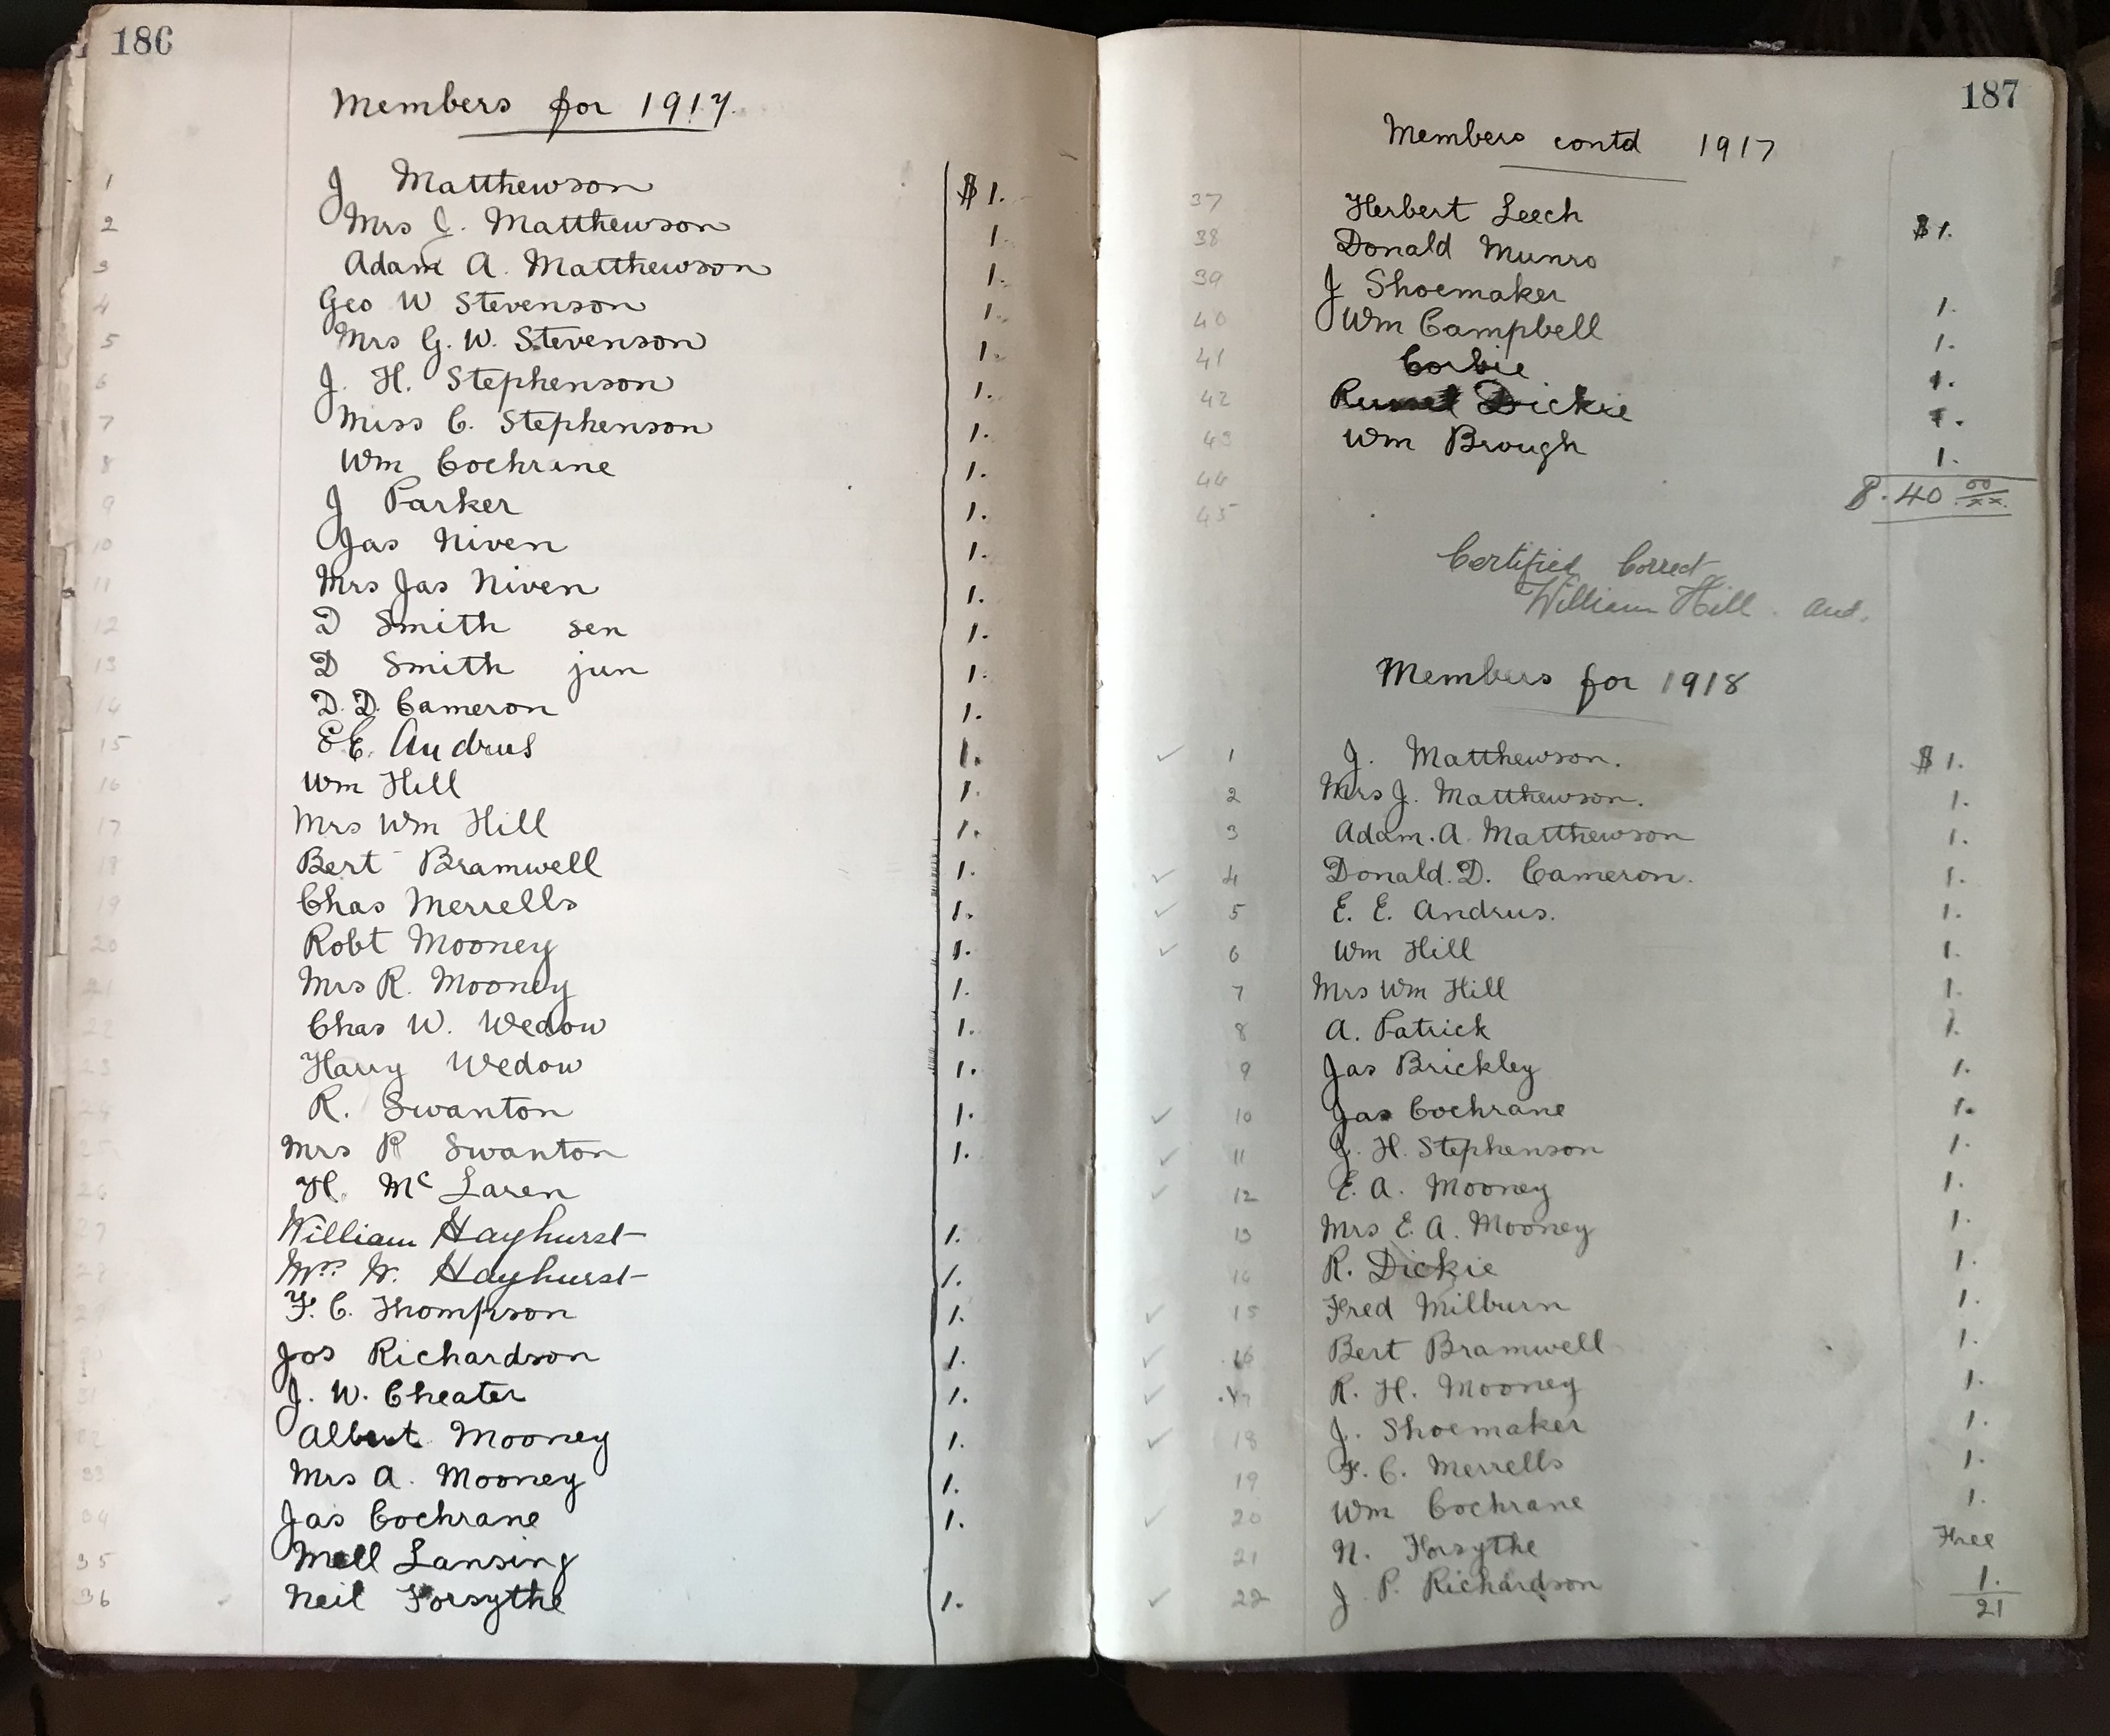 186
Members for 1917.
1 J Matthewson $1.
2 Mrs J. Matthewson 1.
3 Adam A. Matthewson 1.
4 Geo W Stevenson 1.
5 Mrs G. W. Stevenson 1.
6 J. H. Stephenson 1.
7 Miss C. Stephenson 1.
8 Wm Cochrane 1.
9 J Parker 1.
10 Jas Niven 1.
11 Mrs Jas Niven 1.
12 D Smith sen 1.
13 D Smith jun 1.
14 D. D. Cameron 1.
15 E E. Andrus 1.
16 Wm Hill 1.
17 Mrs Wm Hill 1.
18 Bert Bramwell 1.
19 Chas Merrells 1.
20 Robt Mooney 1.
21 Mrs R. Mooney 1.
22 Chas W. Wedow 1.
23 Harry Wedow 1.
24 R. Swanton 1.
25 Mrs R Swanton 1.
26 H. Mc Laren
27 William Hayhurst 1.
28 Mrs W. Hayhurst 1.
29 F. C. Thompson 1.
Jos Richardson 1.
31 J. W. Cheater 1.
32 Albert Mooney 1.
33 Mrs A. Mooney 1.
34 Jas Cochrane 1.
35 Mell Lansing
36 Neil Forsythe 1.
187
Members contd 1917
37 Herbert Leech $1.
38 Donald Munro
39 J Shoemaker 1.
40 Wm Campbell 1.
41 Corbie 1.
42 Russel Dickie 1.
43 Wm Brough 1.
44 8.40 00/xx
45
Certified Correct
William Hill. aud.
Members for 1918
✓ 1 J. Matthewson. $1.
2 Mrs J. Matthewson. 1.
3 Adam. A. Matthewson 1.
✓ 4 Donald. D. Cameron. 1.
✓ 5 E. E. Andrus. 1.
✓ 6 Wm Hill 1.
7 Mrs Wm Hill 1.
8 A. Patrick 1.
9 Jas Brickley 1.
✓ 10 Jas Cochrane 1.
✓ 11 J. H. Stephenson 1.
✓ 12 E. A. Mooney 1.
13 Mrs E. A. Mooney 1.
14 R. Dickie 1.
✓ 15 Fred Milburn 1.
✓ 16 Bert Bramwell 1.
✓ 17 R. H. Mooney 1.
✓ 18 J. Shoemaker 1.
19 F. C. Merrells 1.
✓ 20 Wm Cochrane 1.
21 N. Forsythe Free
✓ 22 J P. Richardson 1.
21